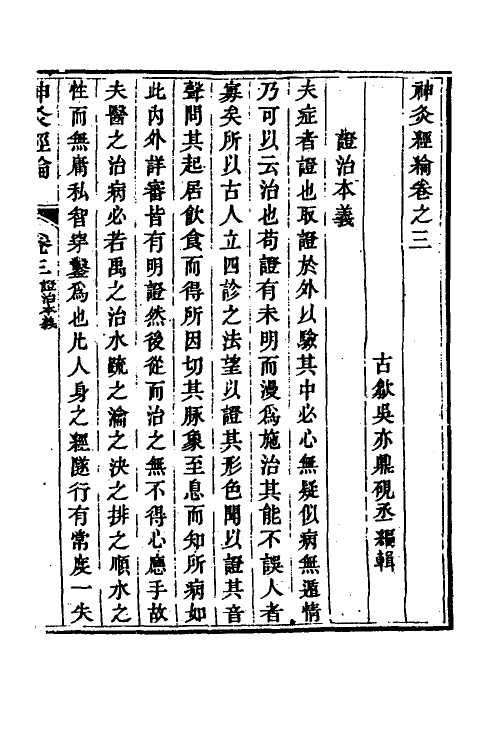 神灸經綸卷之三
古歙吳亦鼎硯丞編輯
證治本義
夫症者證也取證於外以驗其中必心無疑似病無遁情
乃可以云治也苟證有未明而漫爲施治其能不誤人者
寡矣所以古人立四診之法望以證其形色聞以證其音
聲問其起居飲食而得所因切其脉象至息而知所病如
此内外詳審皆有明證然後從而治之無不得心應手故
夫醫之治病必若禹之治水疏之瀹之決之排之順水之
性而無庸私智穿鑿爲也凡人身之經隧行有常度一失
神灸經綸
卷三 證治本義